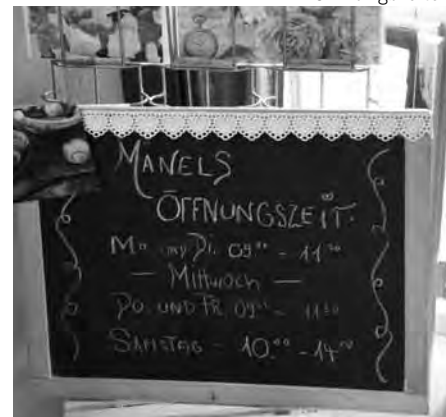 MANELS
ÖFFNUNGSZEIT.
Mo. UND Di. 09⁰⁰ - 11³⁰
— Mittwoch —
Do. UND FR. 09⁰⁰ - 11³⁰
SAMSTAG - 10.⁰⁰ - 14⁰⁰